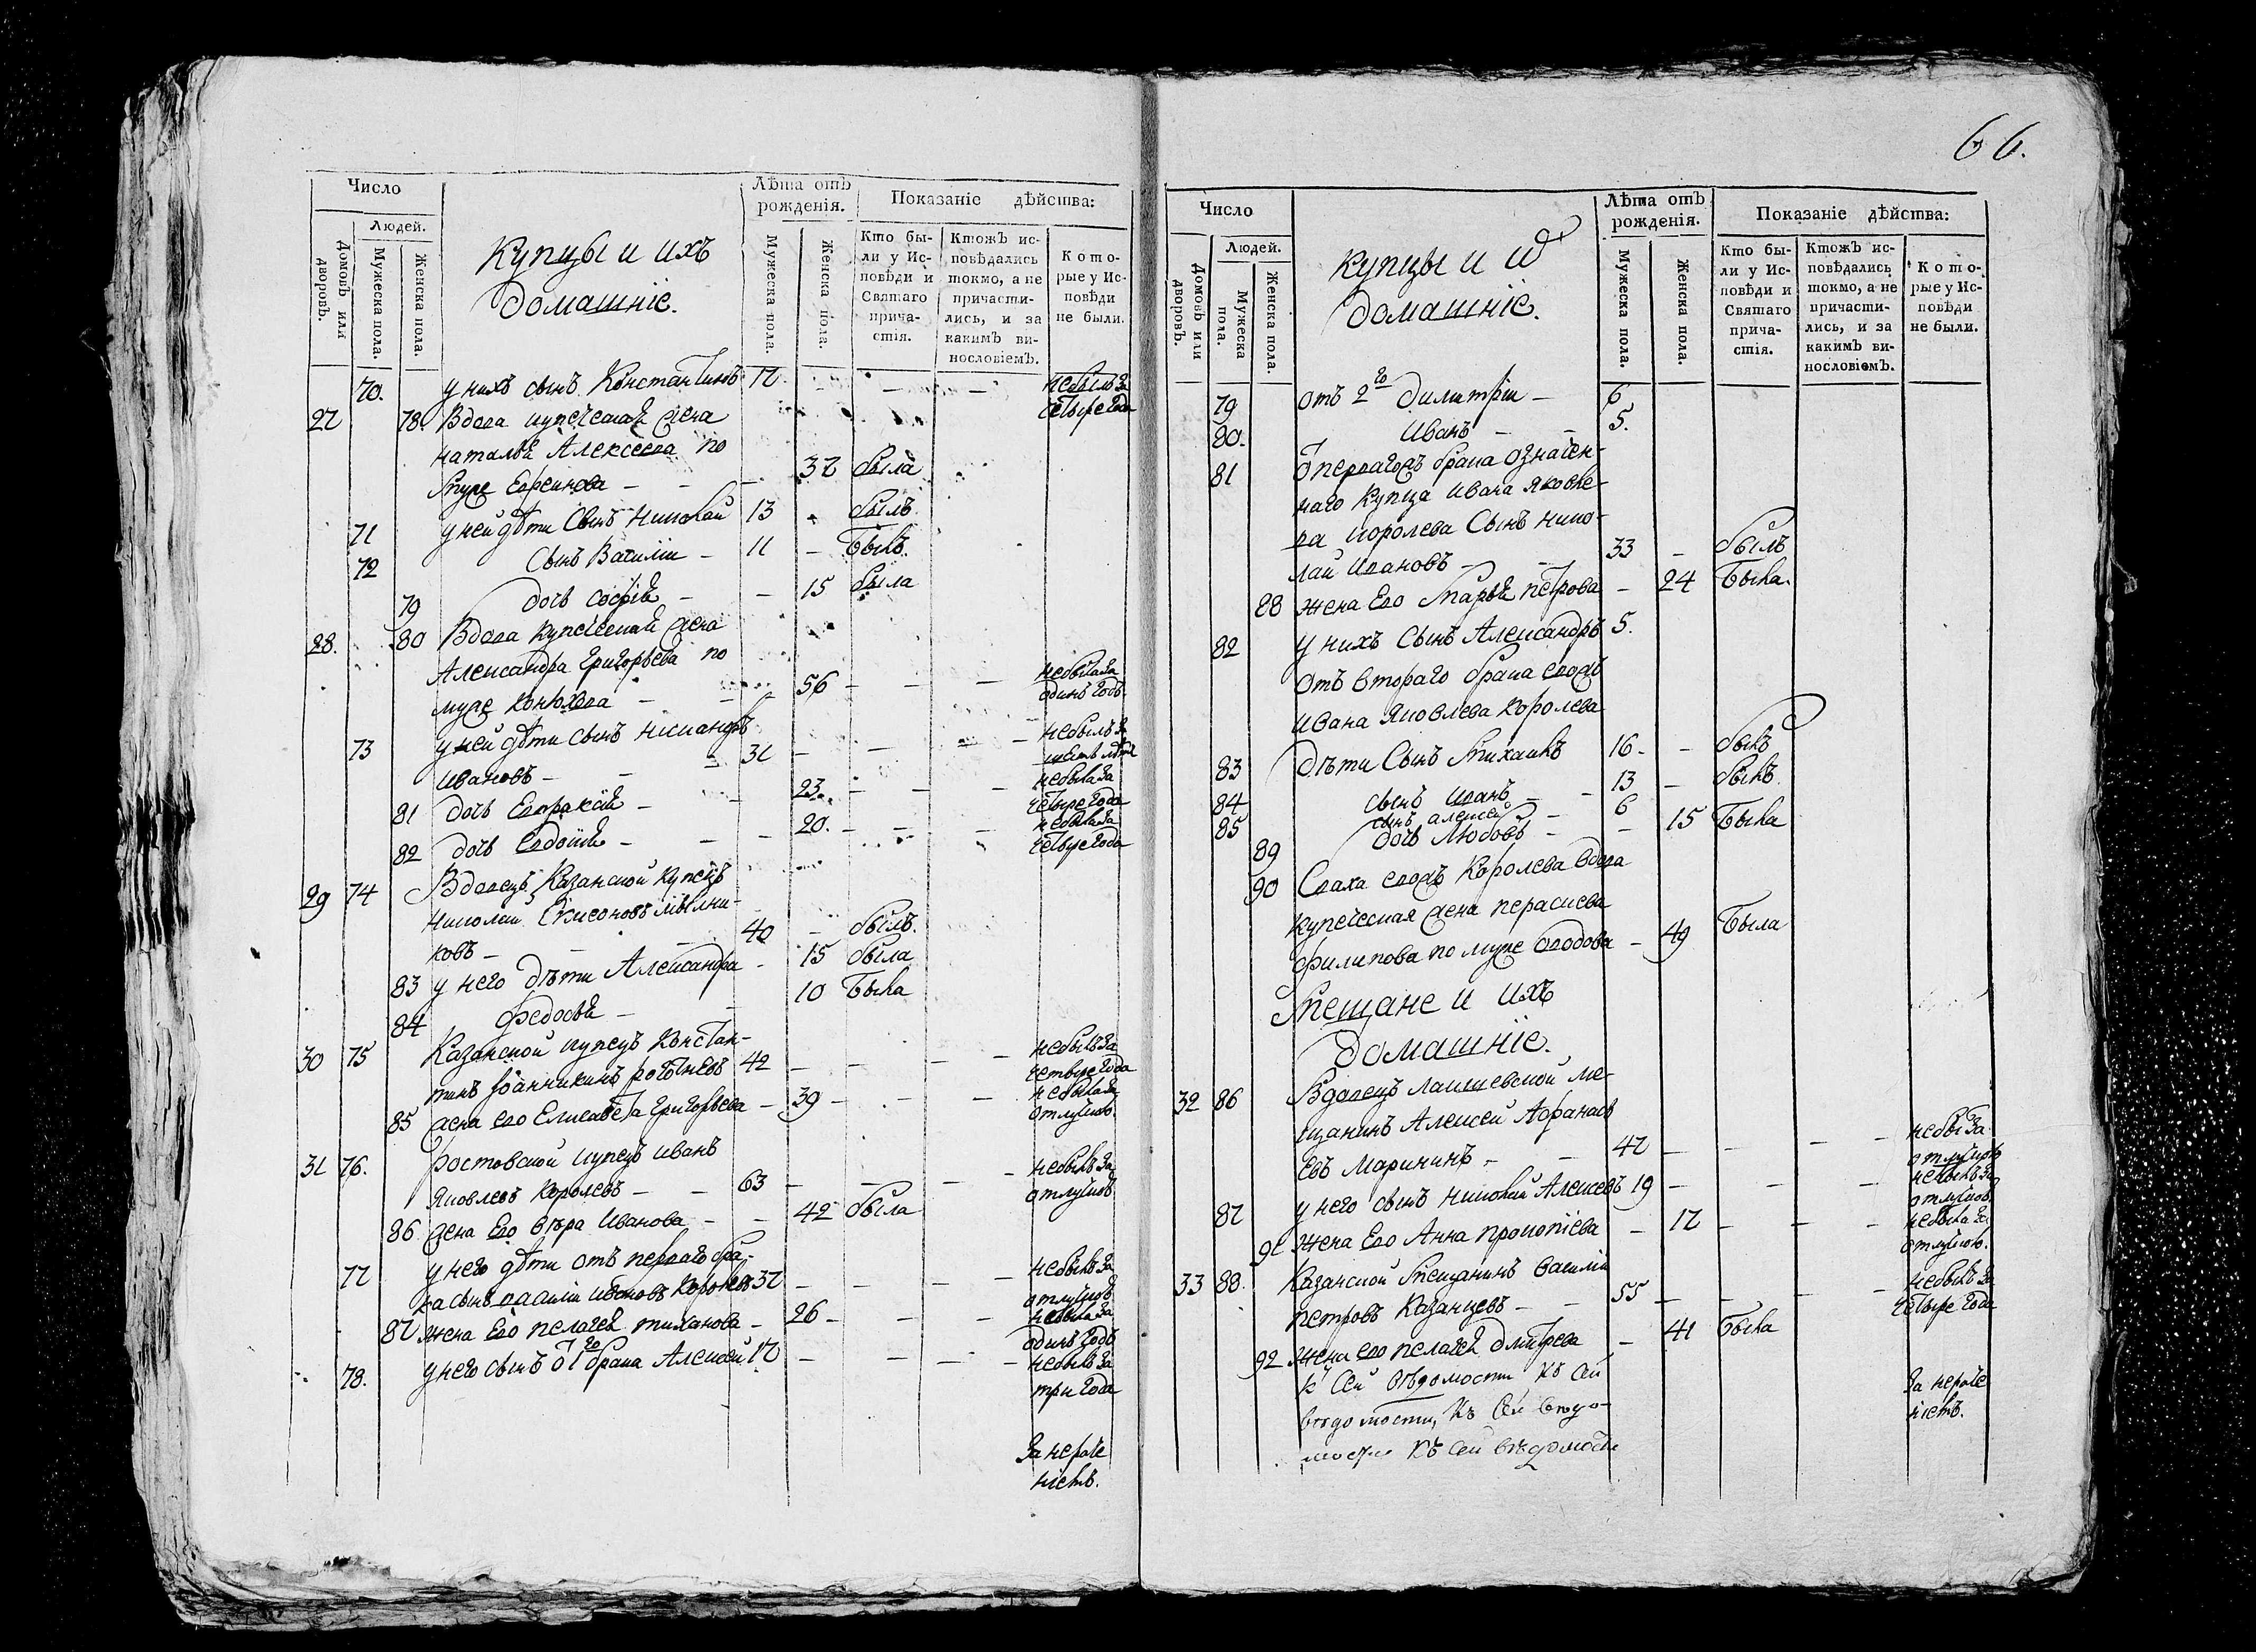 Число
Людей.
Домовъ или дворовъ.
Мужеска пола.
Женска пола.
Купцы и ихъ
домашніе.
Лѣта отъ рожденія.
Мужеска пола.
Женска пола.
Показаніе дѣйства:
Кто были у Исповѣди и Святаго причастія.
Ктожъ исповѣдались токмо, а не причастились, и за какимъ винословіемъ.
Которые у Исповѣди не были.
70. у нихъ сынъ Константинъ 17 – – небылъ за
четыре года
27 78. Вдова купеческая жена
Наталья Алексеева по
муже – – 37 была
71 у ней дѣти Сынъ Николай 13 былъ.
72 Сынъ Василии – 11 – былъ.
79 дочь Софія – – 15 была
28. 80 Вдова купеческая жена
Александра Григорьева по
муже Конюхова – – 56 – – – небыла за
одинъ годъ.
73 у ней дѣти сынъ Никаноръ
Ивановъ – – 31 – – – небылъ за
шесть лѣтъ
81 дочь Евпраксія – – 23. – – – небыла за
четыре года
82 дочь Евдокія – – 20. – – – небыла за
четыре года
29 74 Вдовецъ Казанской купецъ
Николаи Мыльни-
ковъ – – 40 – былъ.
83 у него дѣти Александра – 15 была
84 Федосья – – 10 была
30 75 Казанской купецъ Констан-
тинъ Иоанникинъ 42 – – – небылъ за
четыре года
85 жена ево Елисавета Григорьева – 39 – – – небыла за
отлучкою.
31 76. Ростовской купецъ Иванъ
Яковлевъ Королевъ – – 63 – – – небылъ за
отлучкою.
86 жена Ево Вѣра Иванова – – 42 была
77 у него дѣти отъ перваго бра-
ка сынъ Василии Ивановъ Королевъ 37 – – – небылъ за
отлучкою.
87 жена Ево Пелагея – 26 – – – небыла за
одинъ годъ
78. у него сынъ от 1го брака Алексей 17 – – – небылъ за
три года
За нераче
ніемъ.
66.
Число
Людей.
Домовъ или дворовъ.
Мужеска пола.
Женска пола.
Купцы и
домашніе.
Лѣта отъ рожденія.
Мужеска пола.
Женска пола.
Показаніе дѣйства:
Кто были у Исповѣди и Святаго причастія.
Ктожъ исповѣдались токмо, а не причастились, и за какимъ винословіемъ.
Которые у Исповѣди не были.
79 отъ 2го Димитрии – 6
80. Иванъ – – 5.
81 от перваго брака означен-
наго купца Ивана Яковле-
ва Королева Сынъ Нико-
лаи Ивановъ – – 33 – былъ
88 жена Ево Марья Петрова – 24 была.
82 у нихъ Сынъ Александръ 5.
отъ втораго брака
Ивана Яковлева Королева
83 дѣти Сынъ Михаилъ 16. – былъ
84 сынъ Иванъ – – 13 – былъ.
85 сынъ Алексей – 6
89 дочь Любовь – – 15 была
90 Королева вдова
купеческая жена Параскева
Филипова по муже – 49 была
Мещане и ихъ
домашніе.
32 86 Вдовецъ Лаишевской ме-
щанинъ Алексей Афанась
евъ Марининъ – – 47 – – – небы за
отлучкою
87 у него сынъ Николай Алексеевъ 19 – – – небылъ за
отлучкою
91 жена Ево Анна Прокопіева – 17 – – – небыла за
отлучкою.
33 88. Казанской Мещанинъ Василіи
Петровъ Казанцевъ – – 55 – – – небылъ за
четыре года
92 жена ево Пелагея Дмитрева – 41 была
къ Сей вѣдомости къ сей
вѣдомости, къ сей вѣдо-
мости къ сей вѣдомости
За нераче
ніемъ.